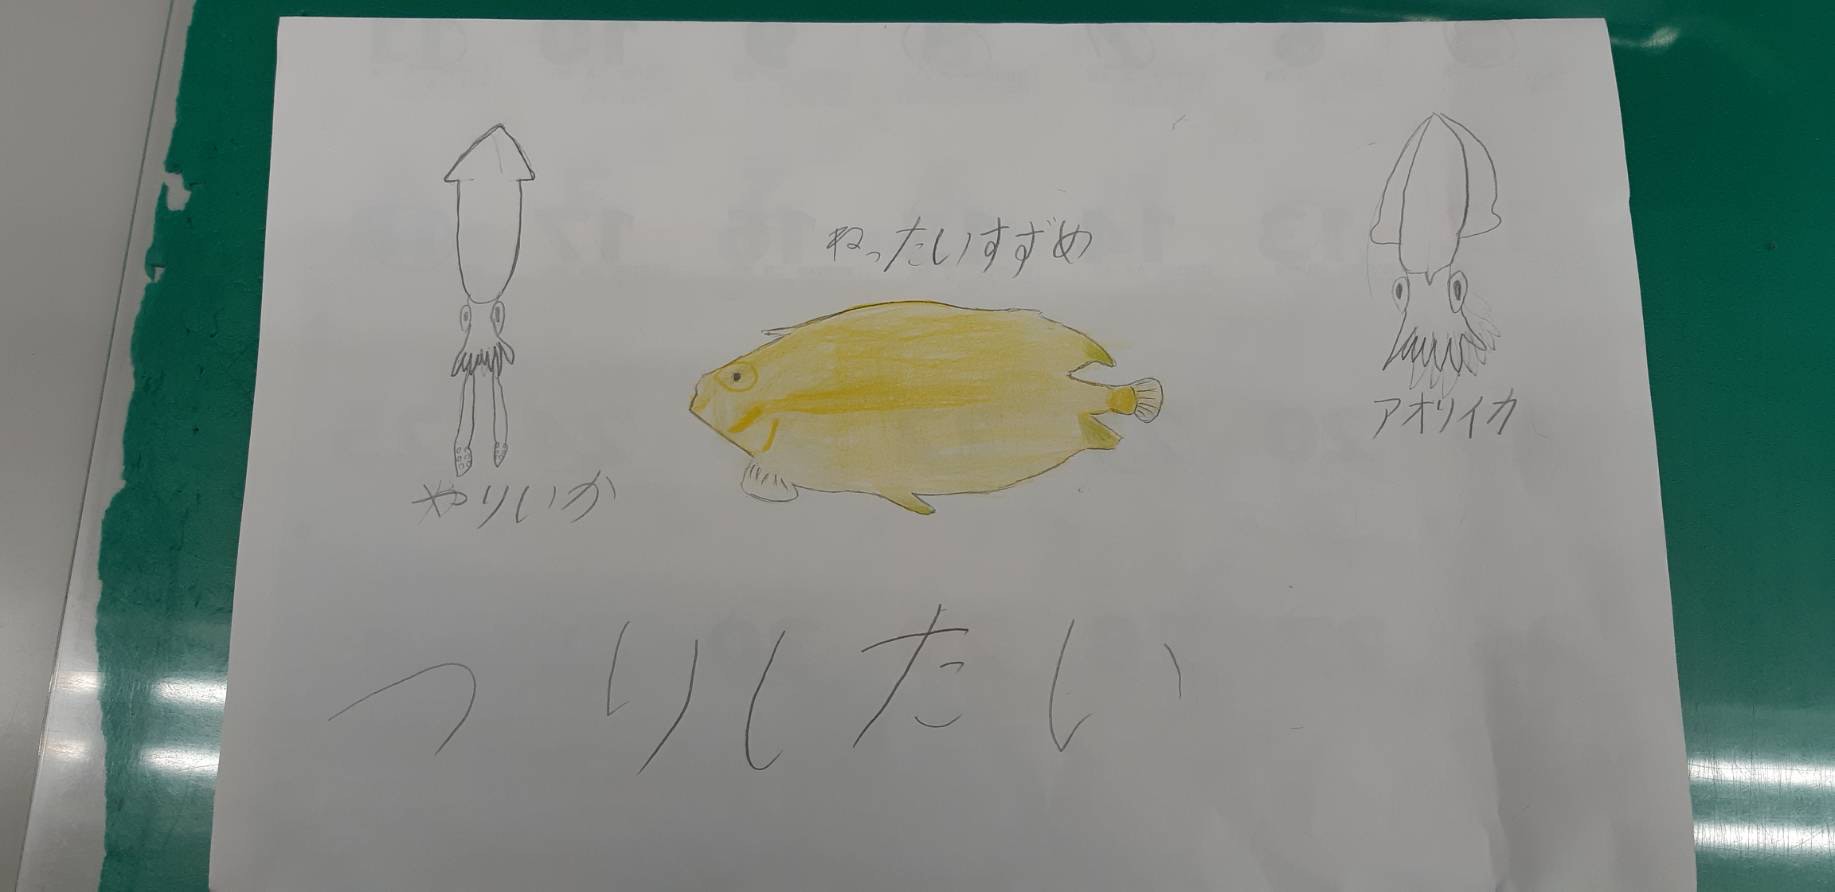 ねったいすずめ
やりいか
アオリイカ
つりしたい